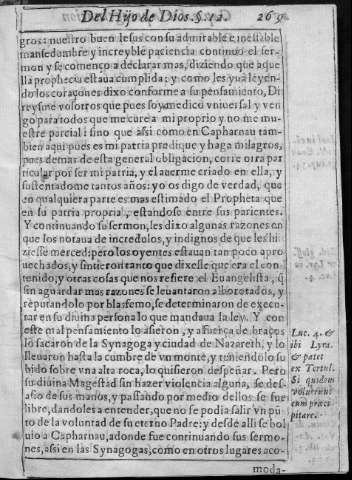 Del Hijo de Dios. §. 12. 269.
gros: nuestro buen Iesus con su admirable e inefable
mansedumbre y increyble paciencia continuò el ser-
mon y se començo a declarar mas, diziendo que aque
lla prophecia estaua cumplida: y como les yua leyen-
do los coraçones dixo conforme a su pensamiento, Di
reysme vosotros que pues soy medico vniuersal y ven
go para todos que me cure a mi proprio y no me mu-
estre parcial: sino que assi como en Capharnau tam-
bien aqui pues es mi patria predique y haga milagros,
pues demas de esta general obligacion, corre otra par
ticular por ser mi patria, y el auerme criado en ella, y
sustentadome tantos años: yo os digo de verdad, que
en qualquiera parte es mas estimado el Propheta que
en su patria propria, estandose entre sus parientes.
Y continuando su sermon, les dixo algunas razones en
que los notaua de incredolos, y indignos de que les hi
ziesse merced: pero los oyentes estauan tan poco apro
uechados, y sintieron tanto que dixesse que era el con-
tenido, y otras cosas que nos refiere el Euangelista, q̃
sin aguardar mas razones se leuantaron alborotados, y
reputandolo por blasfemo, se determinaron de execu-
tar en su diuina persona lo que mandaua la ley. Y con
este mal pensamiento lo asieron, y a fuerça de braços
lo sacaron de la Synagoga y ciudad de Nazareth, y lo
lleuaron hasta la cumbre de vn monte, y teniendolo su
bido sobre vna alta roca, lo quisieron despeñar. Pero
su diuina Magestad sin hazer violencia alguna, se des-
asio de sus manos, y passando por medio dellos se fue
libre, dandoles a entender, que no se podia salir vn pũ
to de la voluntad de su eterno Padre: y desde alli se bol
uio a Capharnau, adonde fue continuando sus sermo-
nes, assi en las Synagogas, como en otros lugares aco-
moda-
Luc. 4. &
ibi Lyra.
& patet
ex Tertul.
Si quidem
voluerunt
eum præci
pitare.